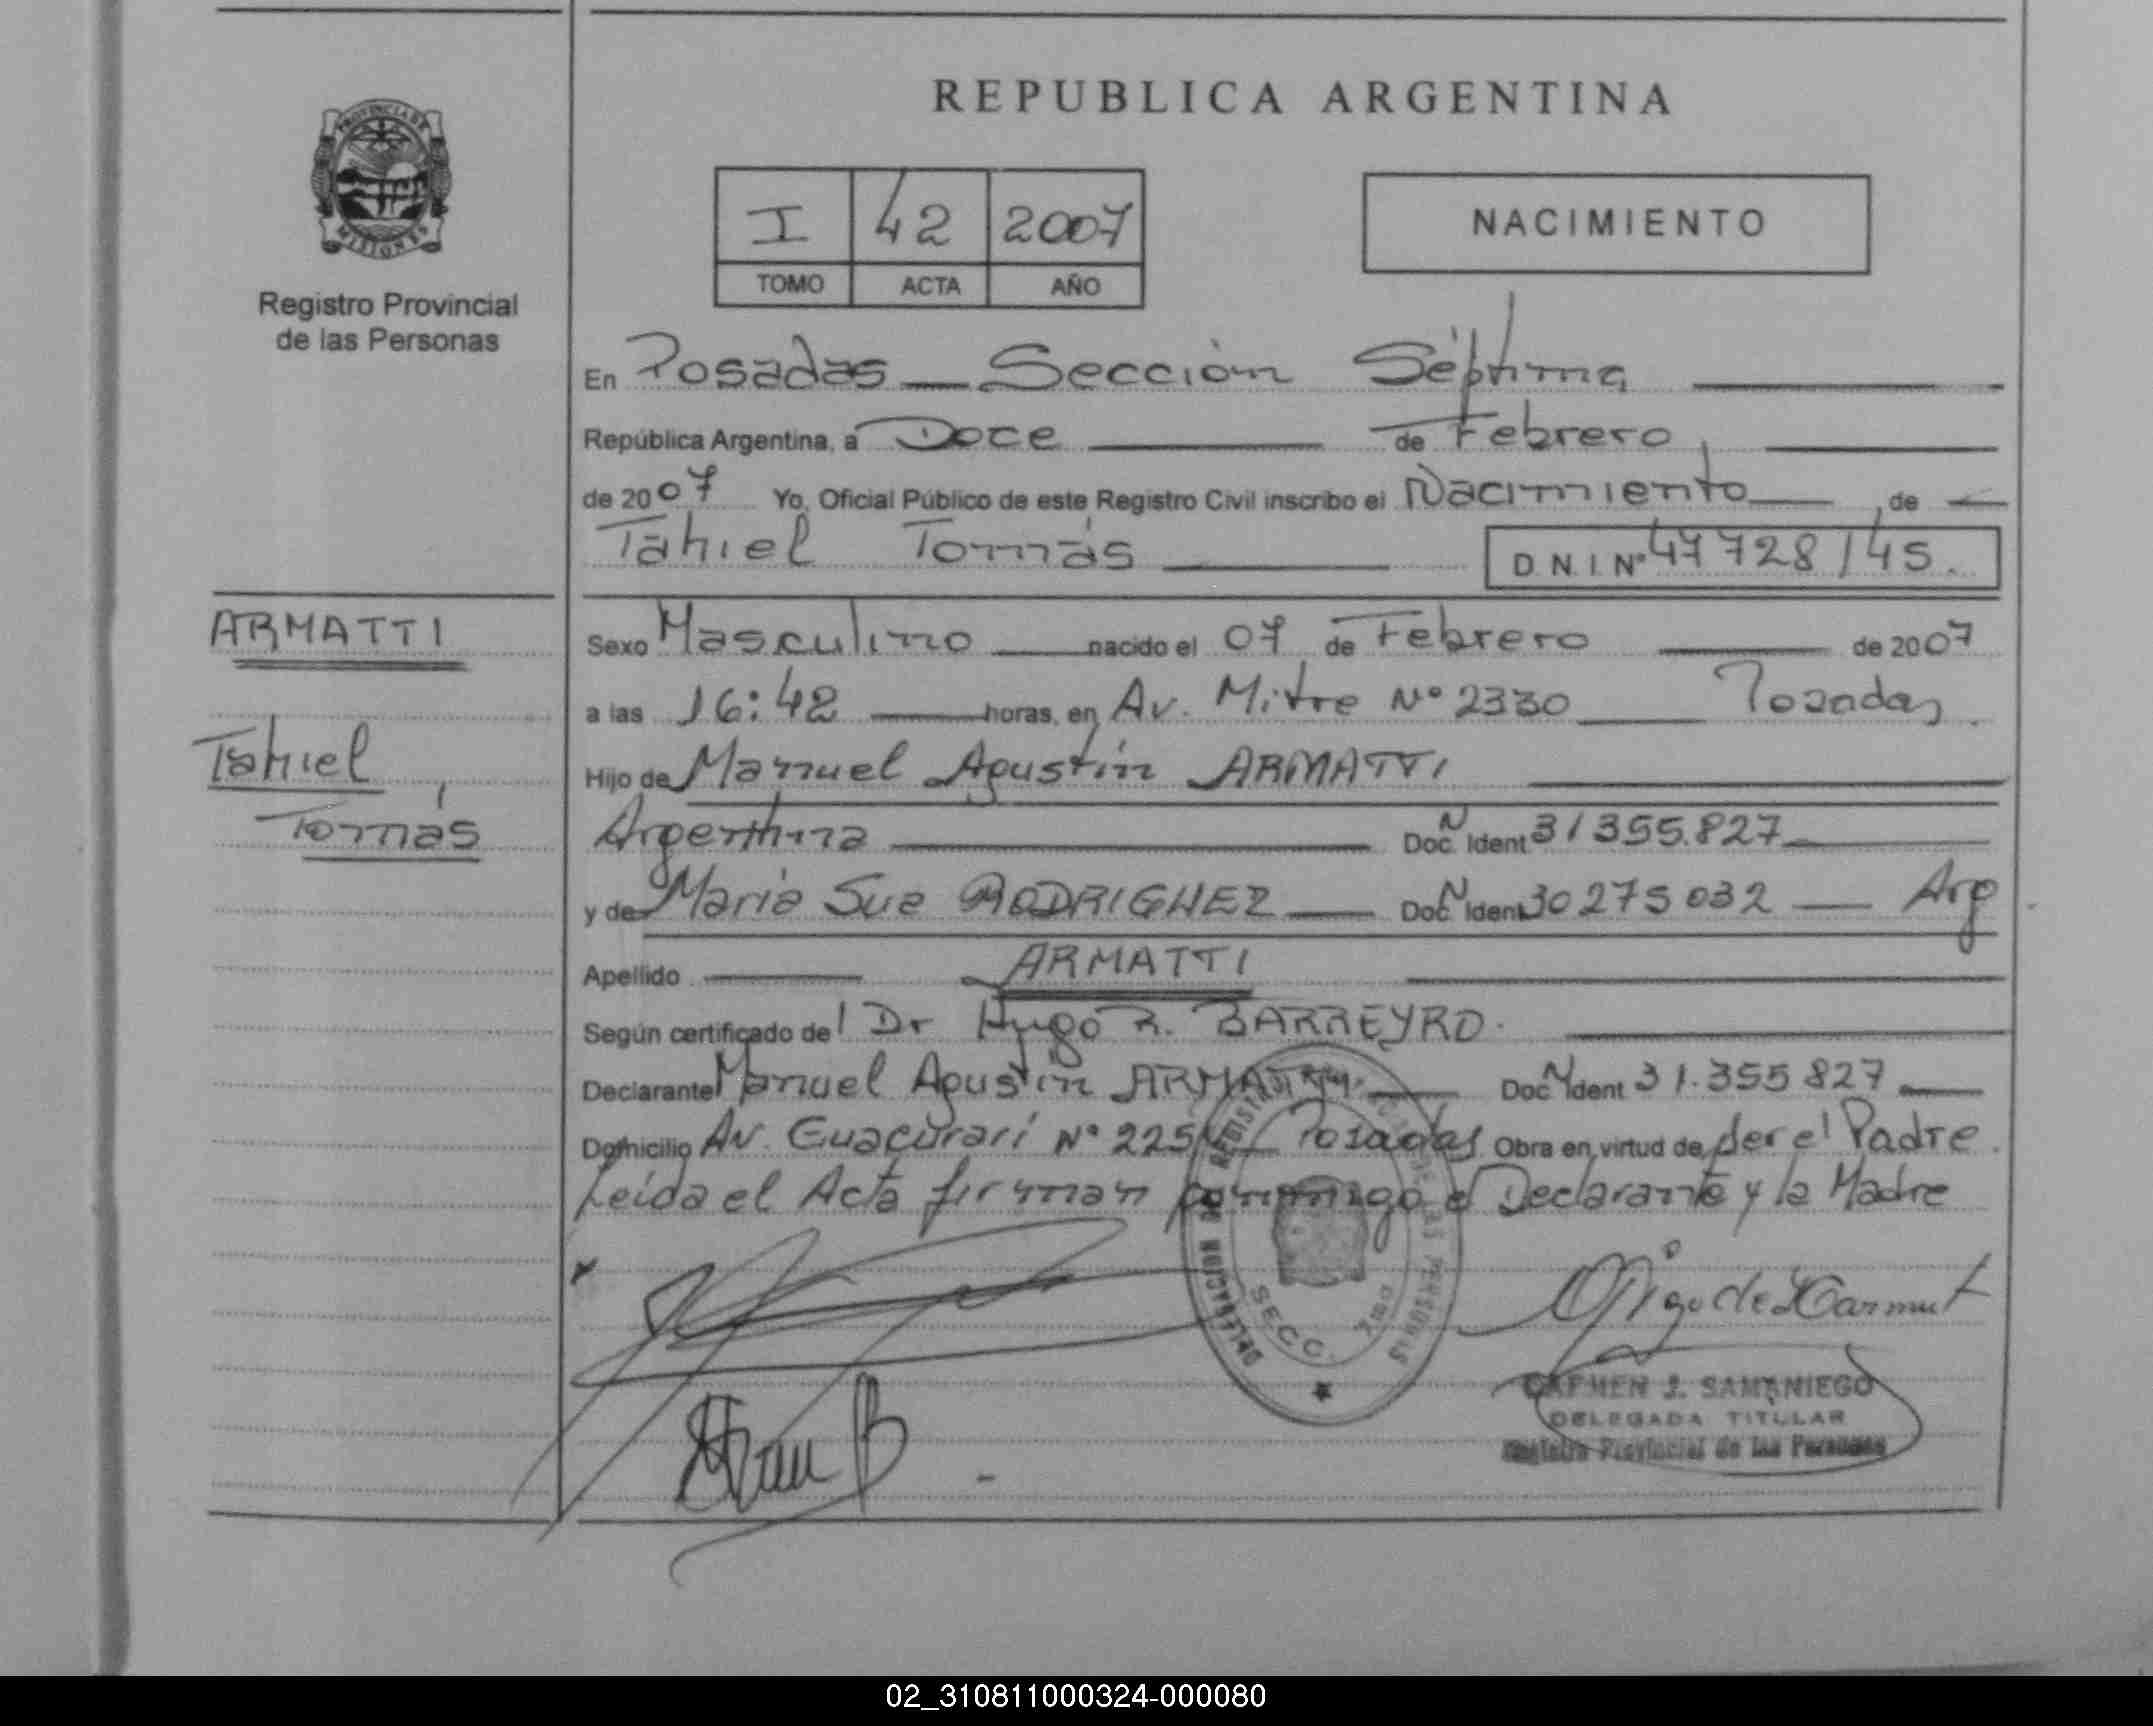 REPUBLICA ARGENTINA
PROVINCIA DE
MISIONES
Registro Provincial
de las Personas
I 42 2007
TOMO ACTA AÑO
NACIMIENTO
En Posadas — Sección Séptima
República Argentina, a Doce de Febrero,
de 2007 Yo, Oficial Público de este Registro Civil inscribo el Nacimiento de
Tahiel Tomás D.N.I. Nº 47728145.
ARMATTI
Tahiel
Tomás
Sexo Masculino nacido el 07 de Febrero de 2007
a las 16:42 horas, en Av. Mitre Nº 2330 Posadas.
Hijo de Manuel Agustín ARMATTI
Argentina Doc. N Ident 31355.827
y de María Sue RODRIGUEZ Doc N Ident 30275032 — Arg
Apellido ARMATTI
Según certificado del Dr Hugo R. BARREYRO.
Declarante Manuel Agustín ARMATTI Doc N Ident 31.355827
Domicilio Av. Guacurarí Nº 225 Posadas Obra en virtud de ser el Padre.
Leída el Acta firman conmigo el Declarante y la Madre
SECC. 7ma
CARMEN J. SAMANIEGO
DELEGADA TITULAR
Registro Provincial de las Personas
02_310811000324-000080